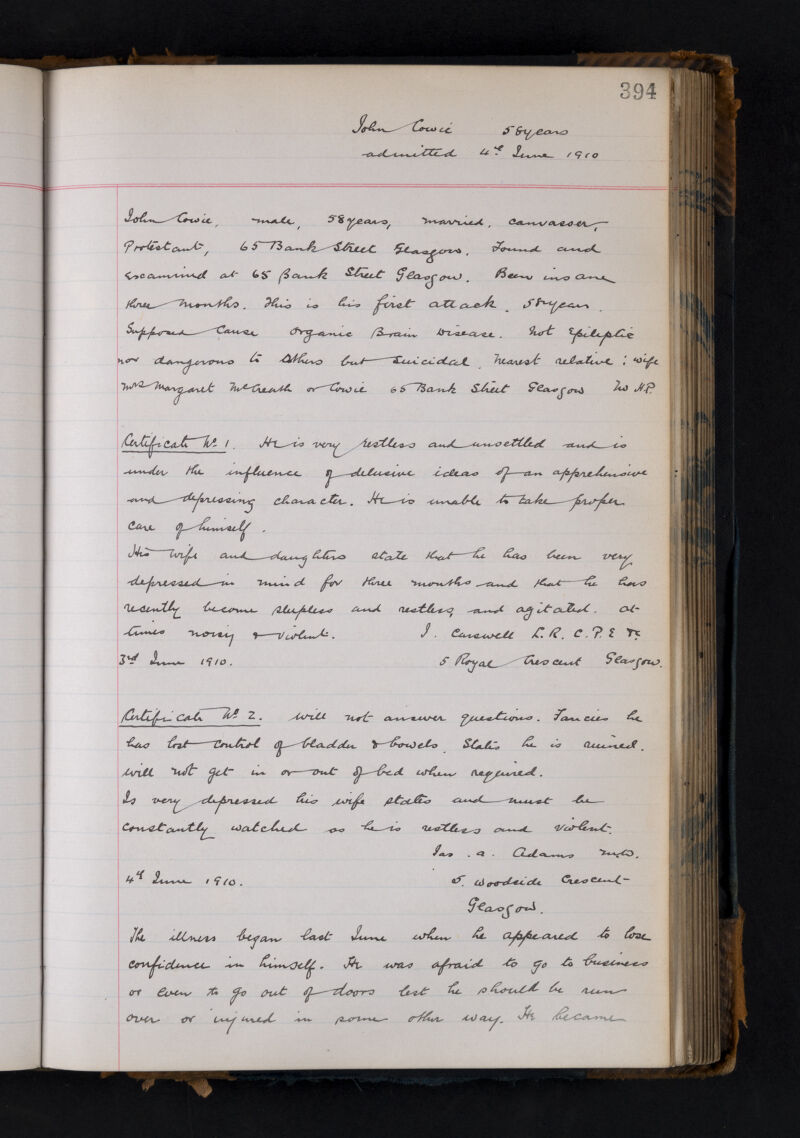 394
John Cowie 58 years
admitted 4th June 1910
John Cowie, male, 58 years, married, canvasser,
Protestant, 65 Bank Street Glasgow. Found and
examined at 65 Bank Street Glasgow. Been insane
three months. This is his first attack. 58 years.
Supposed Cause Organic Brain Disease. Not Epileptic
nor dangerous to Others but Suicidal. Nearest relative: wife
Mrs Margaret McCreath or Cowie 65 Bank Street Glasgow No H.P.
Certificate No 1. He is very restless and unsettled and is
under the influence of delusive ideas of an apprehensive
and depressing character. He is unable to take proper
care of himself.
His wife and daughters state that he has been very
depressed in mind for three months and that he has
recently become sleepless and restless, and agitated. at
times noisy & violent. J. Carswell L.R.C.P.E &c
3rd June 1910. 5 Royal Crescent Glasgow.
Certificate No 2. Will not answer questions. Fancies he
has lost control of bladder & bowels. States he is ruined.
Will not get in or out of bed when required.
Is very depressed his wife states and must be
constantly watched as he is restless and violent.
Jas. A. Adams M.D.
4th June 1910. 5. Woodside Crescent
Glasgow.
The illness began last June when he appeared to lose
confidence in himself. He was afraid to go to business
or even to go out of doors lest he should be run
over or injured in some other way. He became